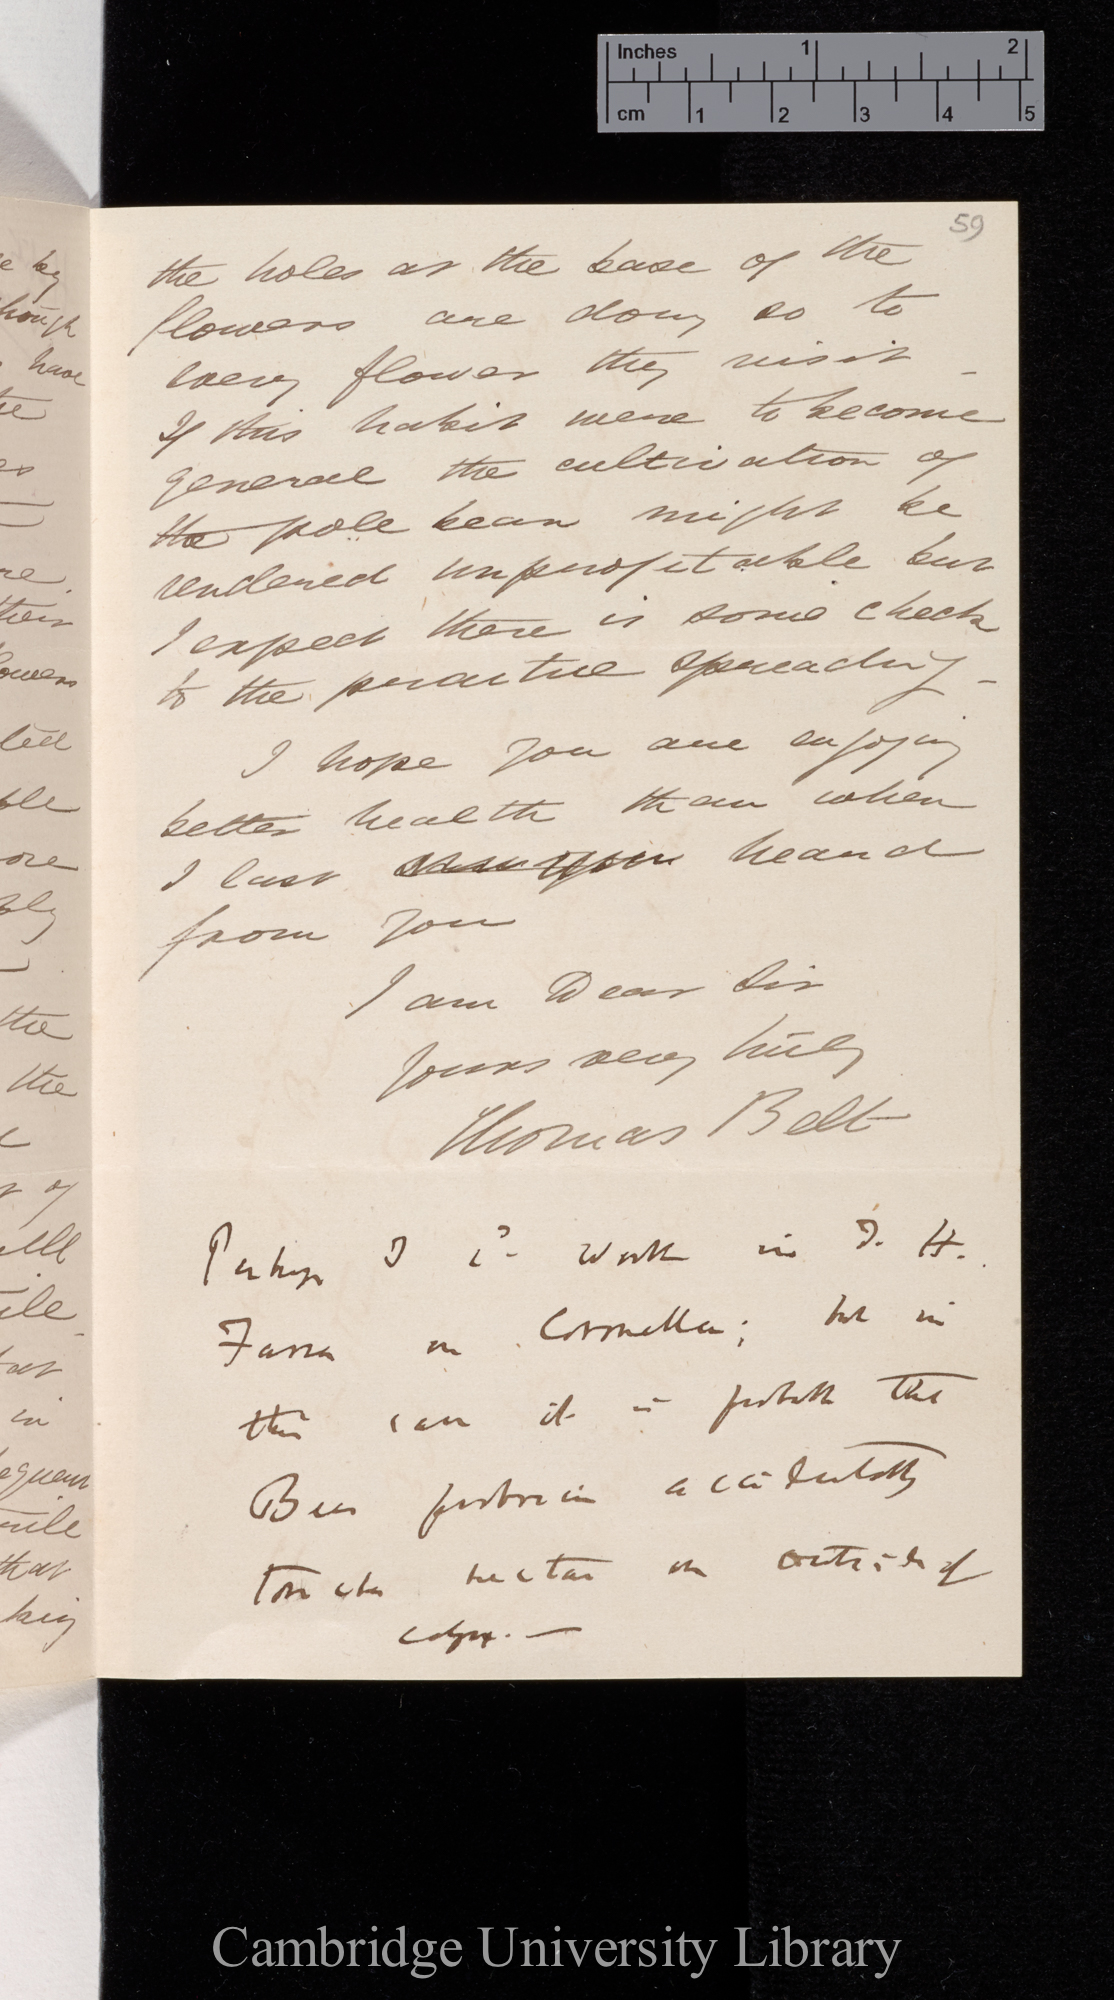 Inches 1 2
cm 1 2 3 4 5
59
the holes at the base of the
flowers are doing so to
every flower they visit _
If this habit were to become
general the cultivation of
the pole bean might be
rendered unprofitable but
I expect there is some check
to the practice spreading _
I hope you are enjoying
better health than when
I last heard
from you
I am Dear Sir
yours very truly
Thomas Belt
Perhaps I cd work in T. H.
Farrer on Coronilla; but in
this case it is probable that
Bees proboscis accidentally
touches nectar on outside of
calyx. —
e by
though
have
the
es
re
their
flowers
ple
ore
bly
the
the
of
ile
in
that
king
Cambridge University Library